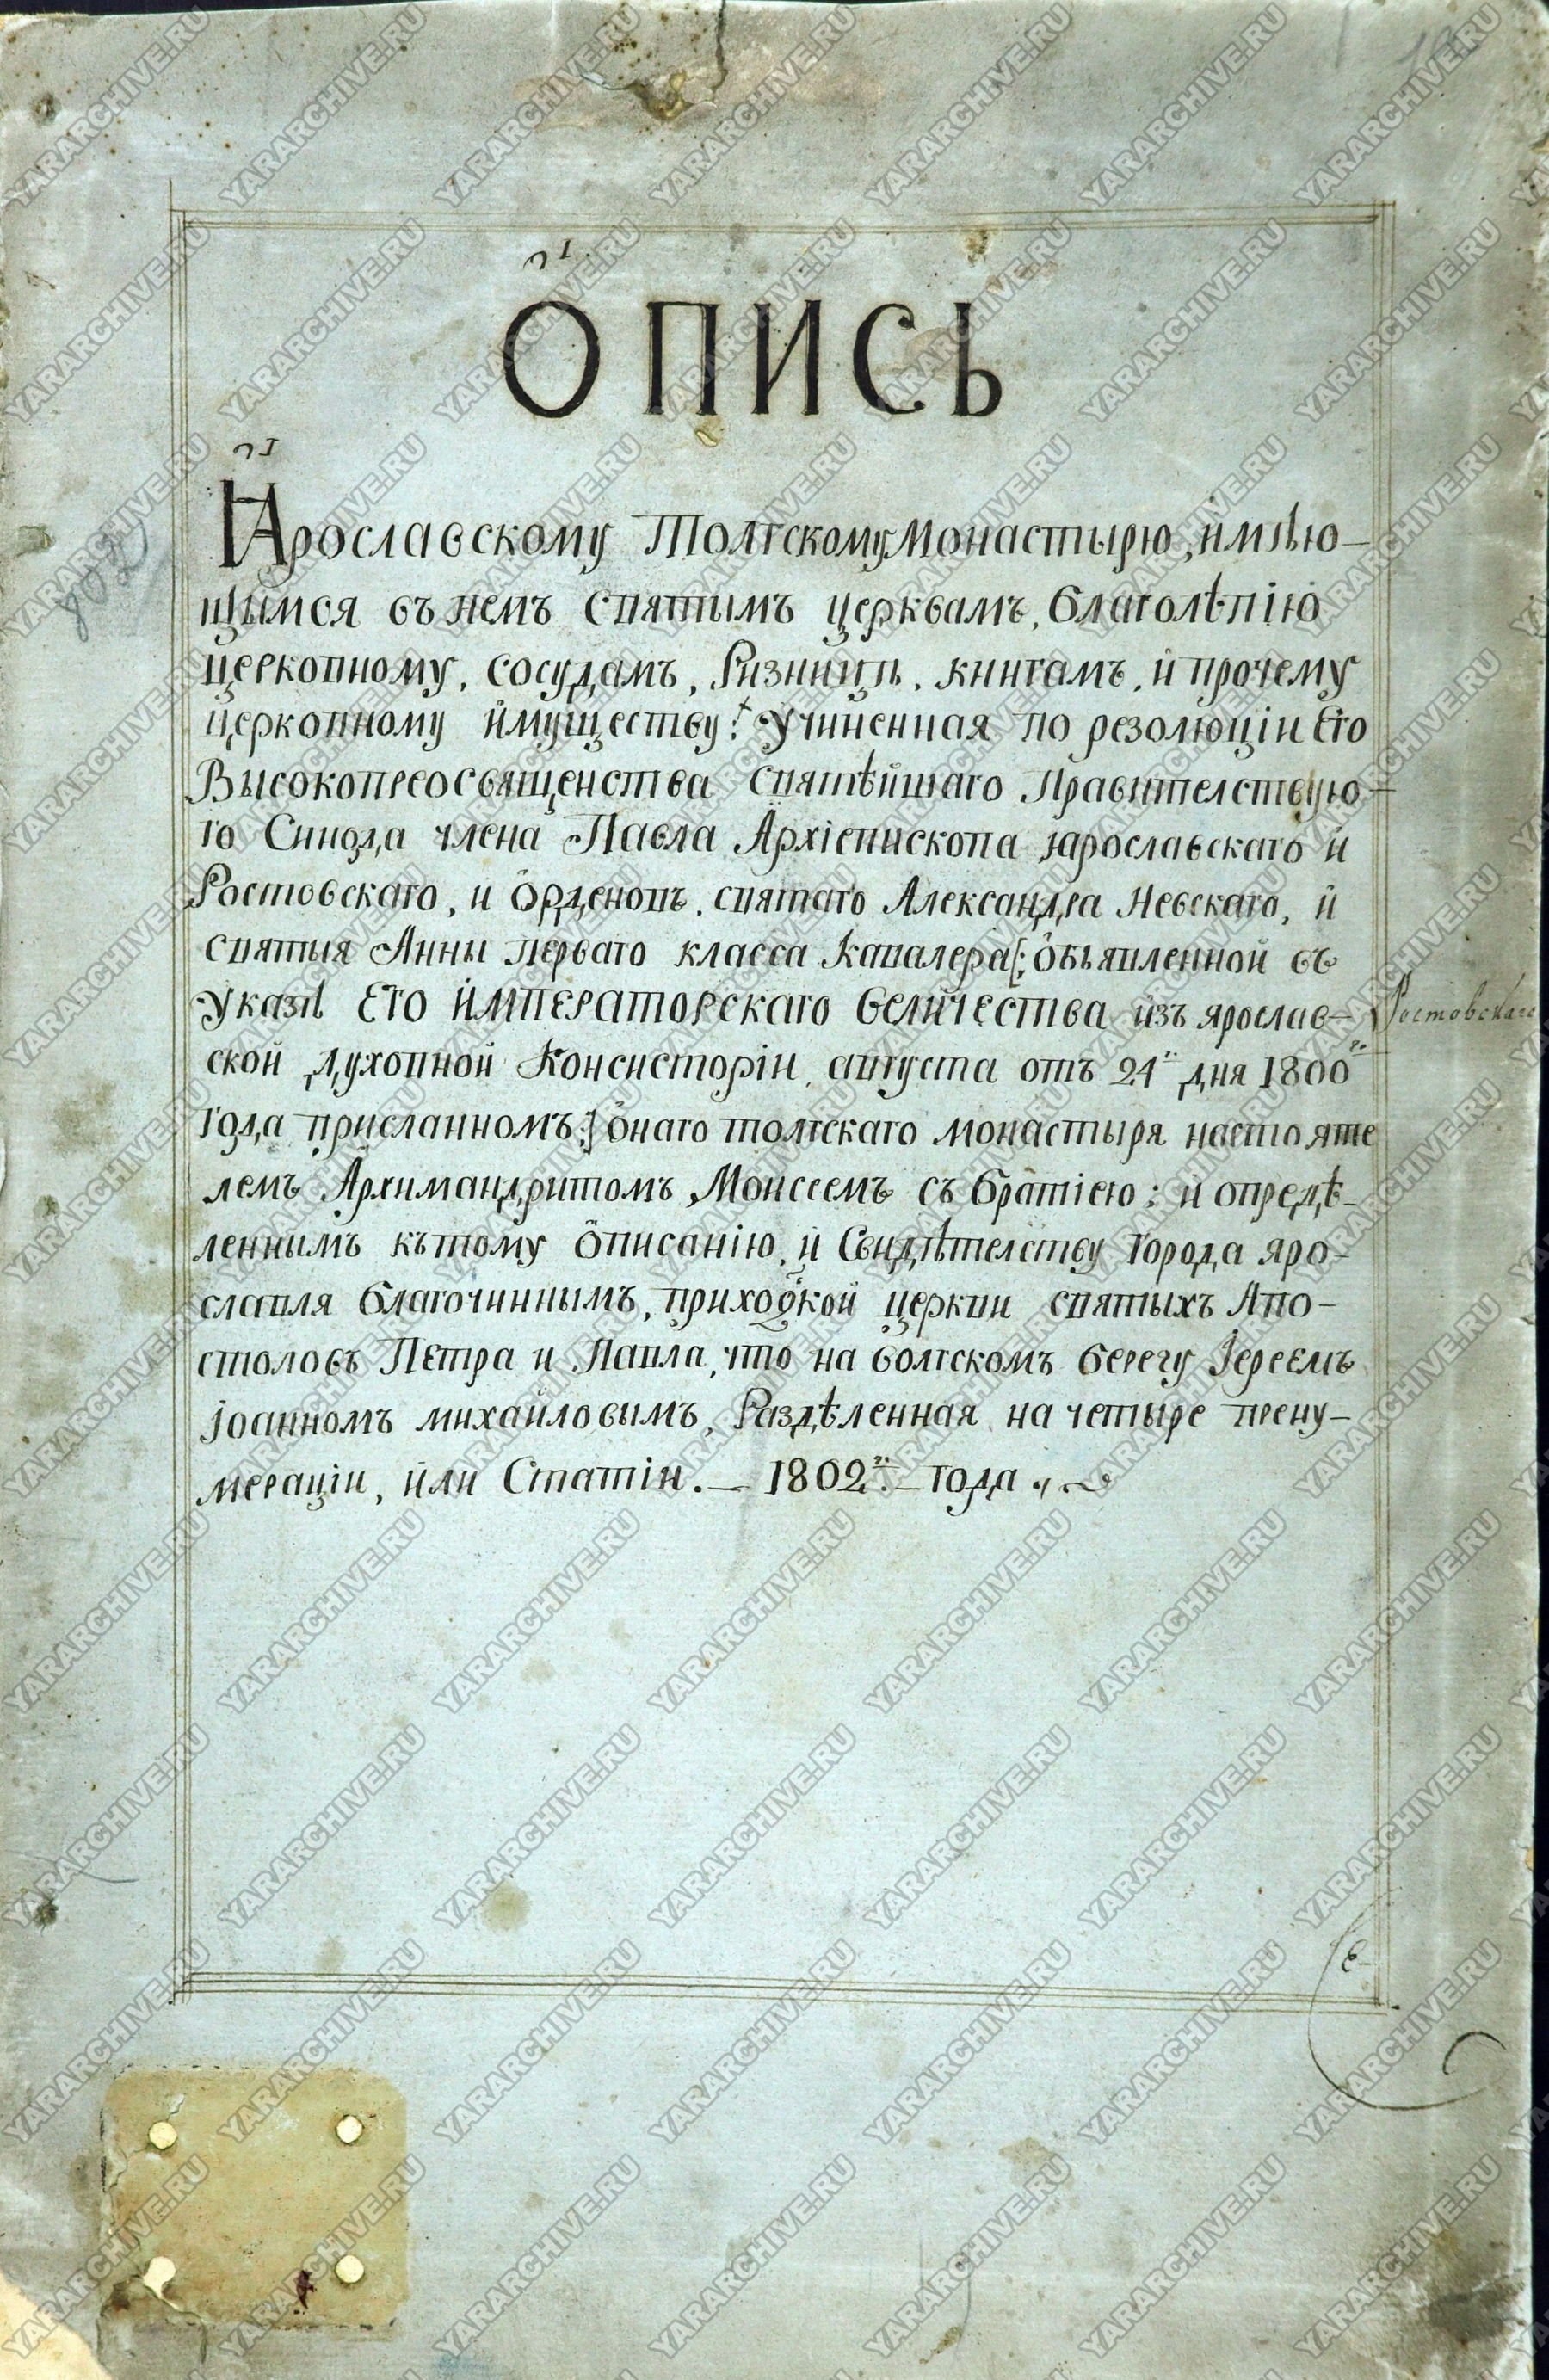 ОПИСЬ
Ꙗрославскому Толгскому Монастырю, имѣю-
щимся въ немъ святымъ церквамъ, благолѣпію
церковному, сосудамъ, Ризницѣ, книгамъ, и прочему
церковному имуществу: Учиненная по резолюціи Его
Высокопреосвященства святѣйшаго Правителствую-
го Синода члена Павла Архіепископа ярославскаго и
Ростовскаго, и орденовъ, святаго Александра Невскаго, и
святыя Анны перваго класса Кавалера [: объявленной въ
Указѣ Его ИМПЕРАТОРСКАГО Величества изъ ярослав-
Ростовская
ской духовной Консисторіи, августа отъ 21" дня 1800"
года присланномъ :] онаго толгскаго монастыря настояте
лемъ Архимандритомъ Моисеемъ съ братіею: и опредѣ-
леннымъ къ тому описанію, и Свидѣтелству города яро-
славля благочиннымъ, приходкой церкви святыхъ Апо-
столовъ Петра и Павла, что на волгскомъ берегу Іереемъ
Іоанномъ михайловымъ, Раздѣленная на четыре прену-
мераціи, или Статіи. — 1802" — года
802
YARARCHIVE.RU